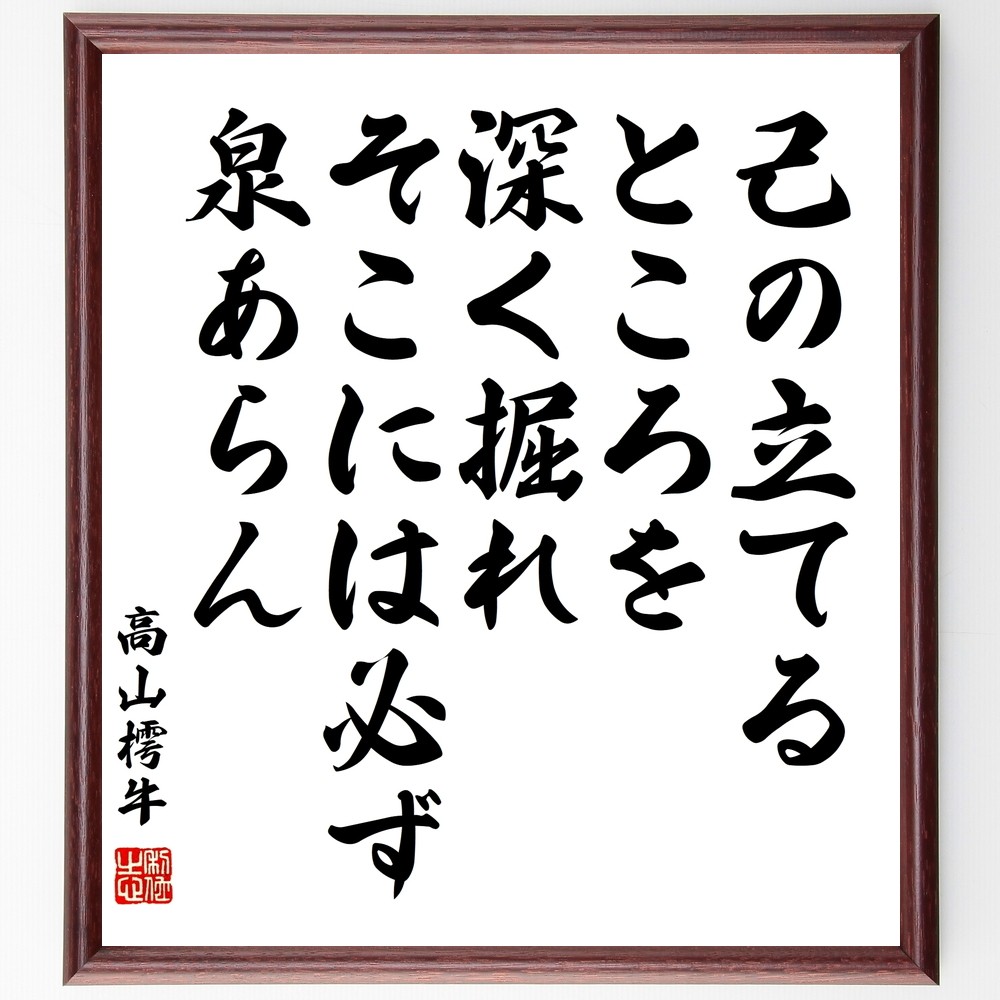 己の立てる
ところを
深く掘れ
そこには必ず
泉あらん
高山樗牛